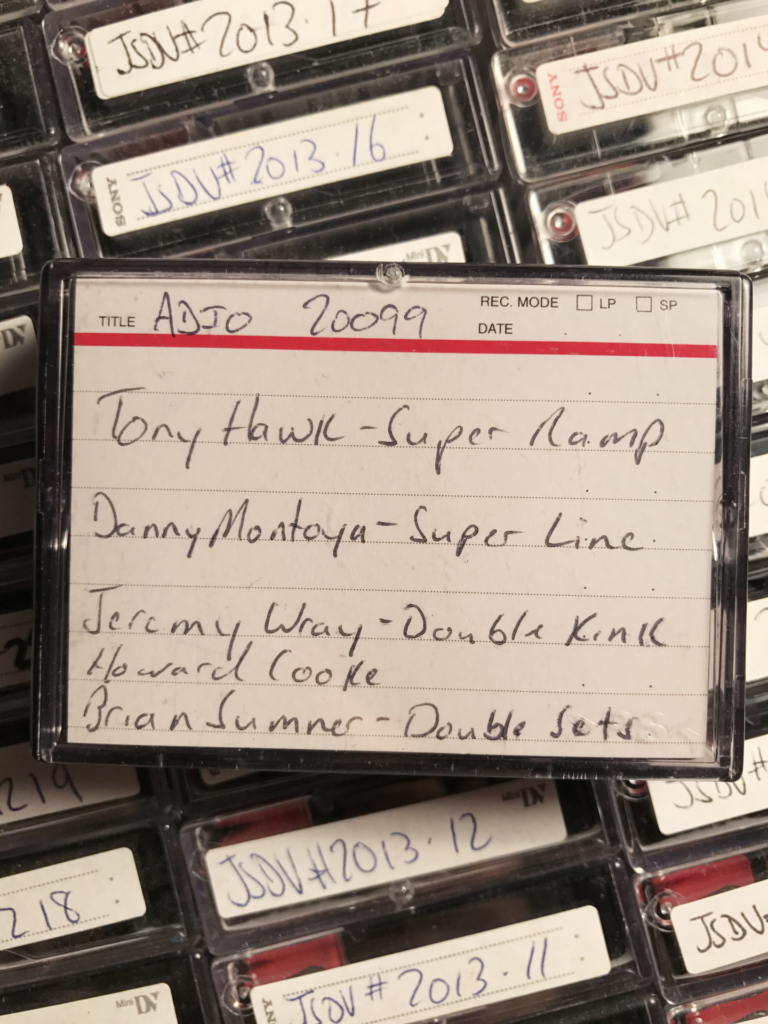 JSDV#2013.17
JSDV#2014
SONY
JSDV#2013.16
SONY
JSDV#201
Mini DV
TITLE ADIO 20099
REC. MODE LP SP
DATE
DV
Tony Hawk - Super Ramp
Danny Montoya - Super Line
Jeremy Wray - Double Kink
Howard Cooke
Brian Sumner - Double Sets
219
Mini DV
JSDV#2013.12
JSDV#
218
JSDV
JSDV#2013.11
Mini DV